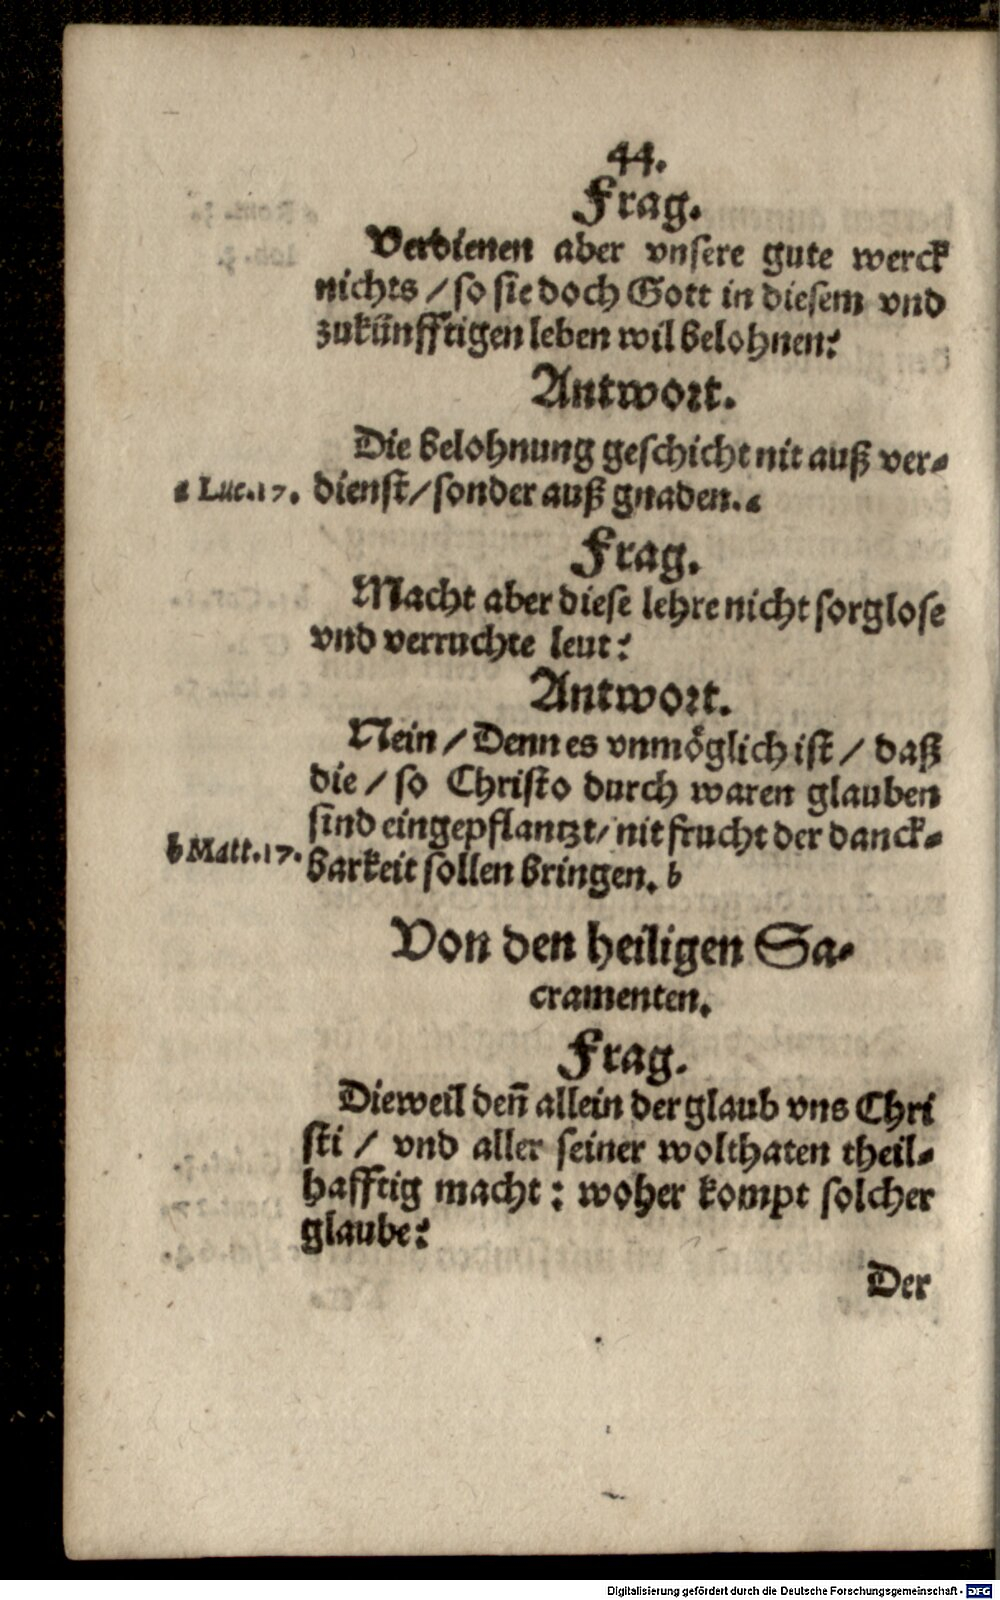 44.
Frag.
Verdienen aber vnsere gute werck
nichts / so sie doch Gott in diesem vnd
zukünfftigen leben wil belohnen?
Antwort.
Die belohnung geschicht nit auß ver-
a Luc.17. dienst / sonder auß gnaden. a
Frag.
Macht aber diese lehre nicht sorglose
vnd verruchte leut?
Antwort.
Nein / Denn es vnmöglich ist / daß
die / so Christo durch waren glauben
sind eingepflantzt / nit frucht der danck-
b Matt.17. barkeit sollen bringen. b
Von den heiligen Sa-
cramenten.
Frag.
Dieweil deñ allein der glaub vns Chri
sti / vnd aller seiner wolthaten theil-
hafftig macht: woher kompt solcher
glaube?
Der
Digitalisierung gefördert durch die Deutsche Forschungsgemeinschaft - DFG